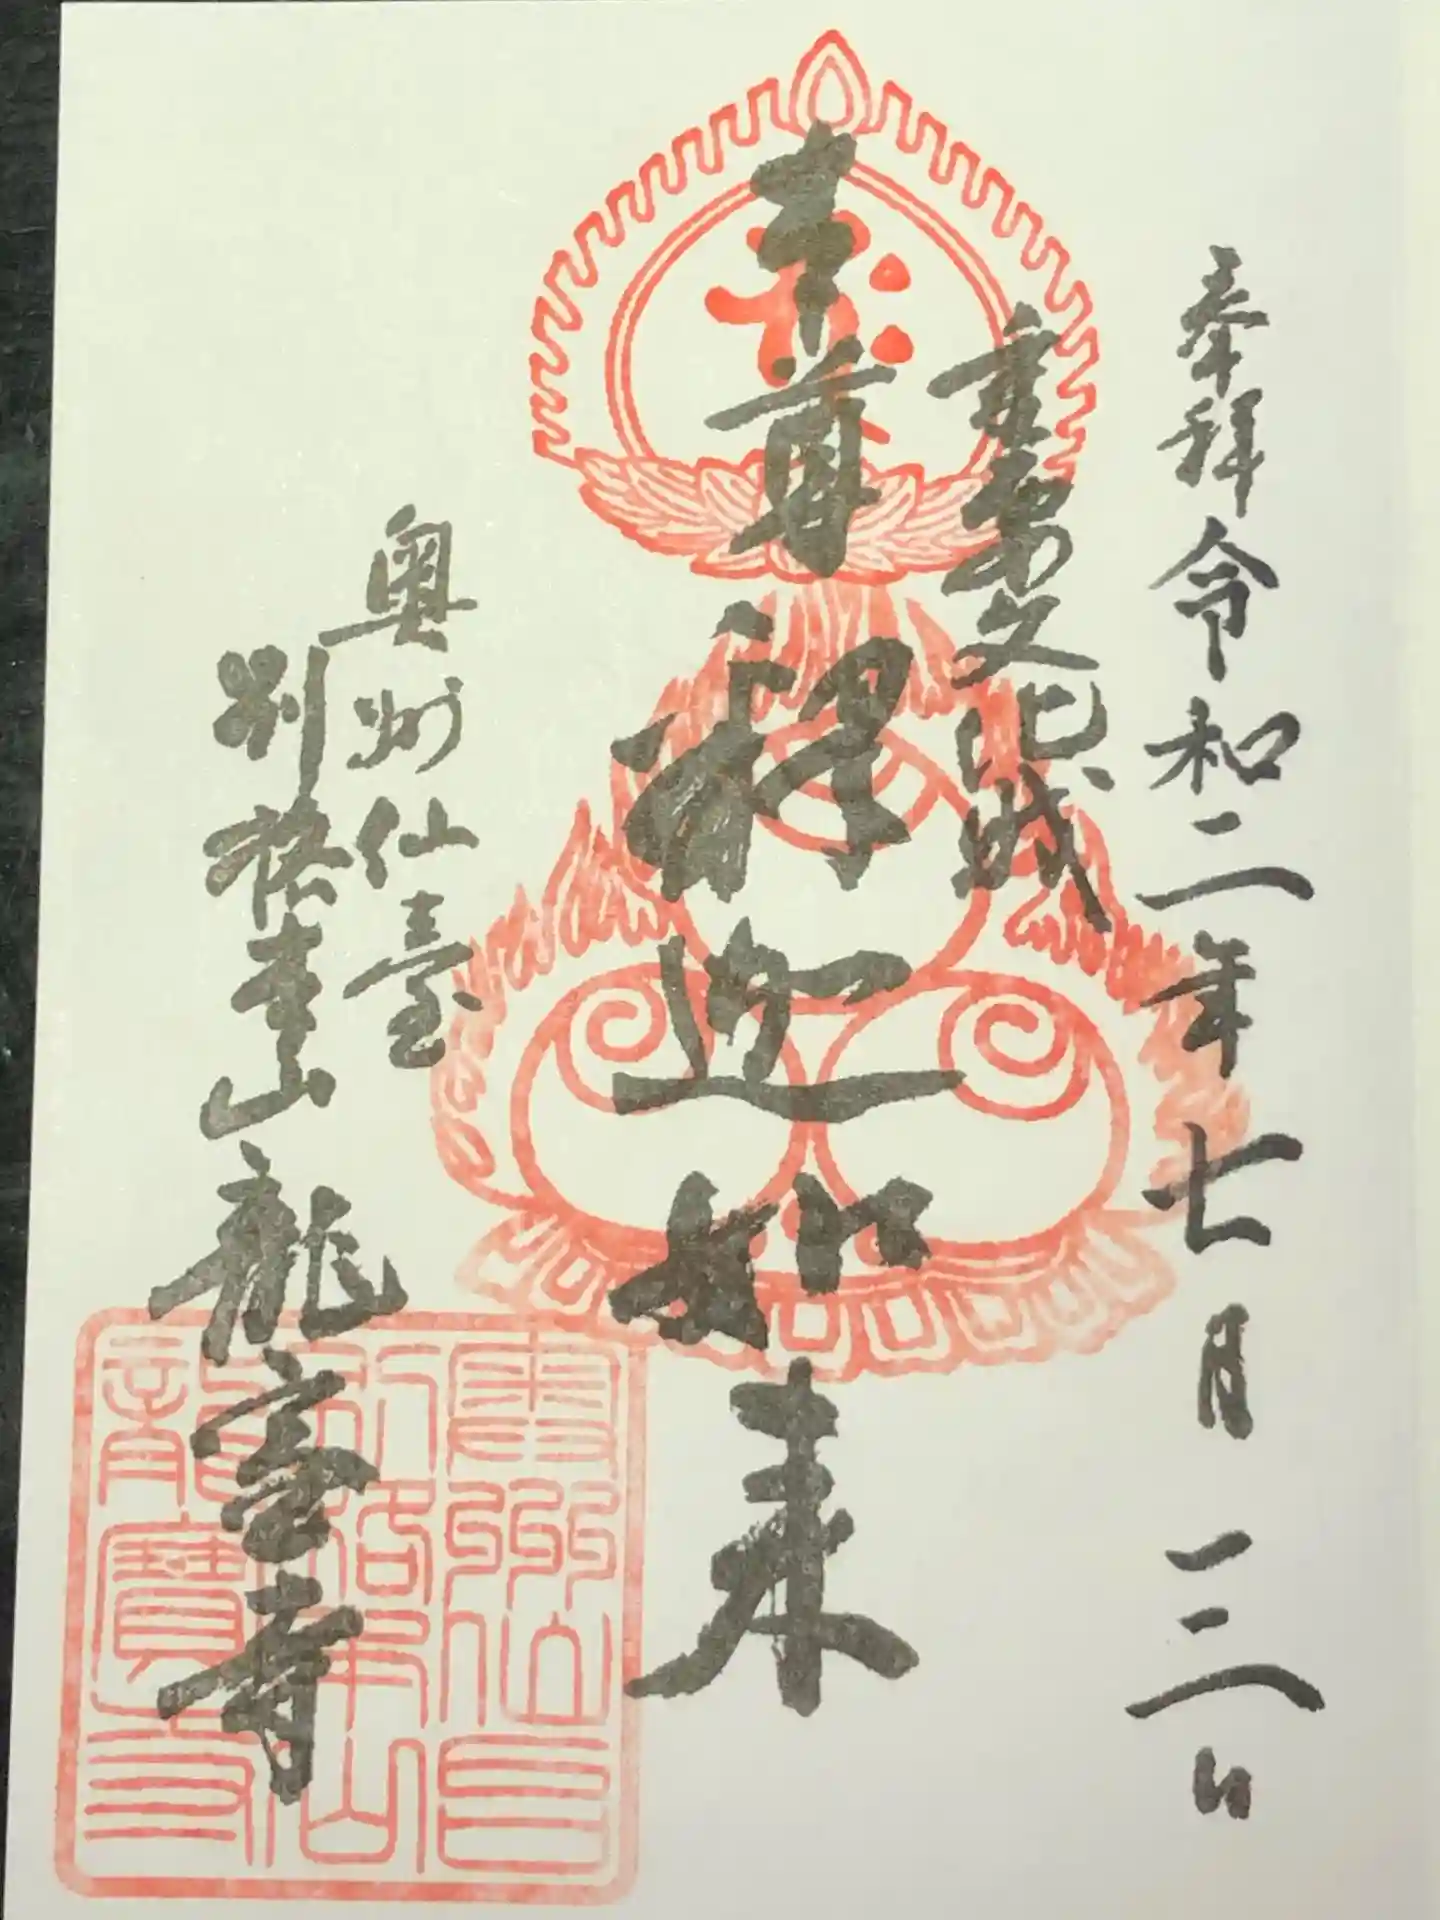 奉拝 令和二年七月三日
重要文化財
本尊 釋迦如来
奥州仙臺
別格本山 龍宝寺
別格本山
龍寶寺